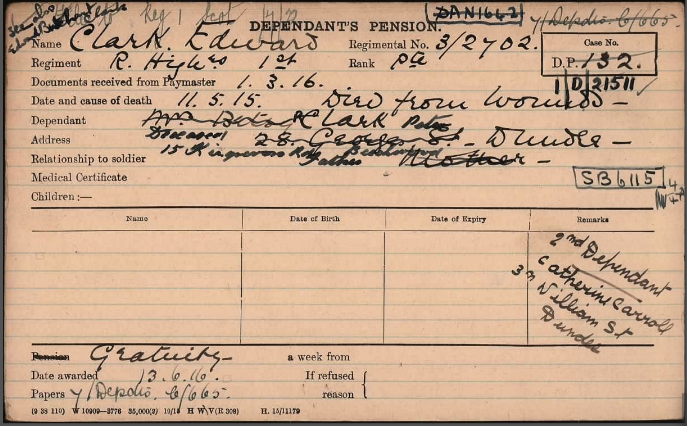 see also
Reg 1 Scot
DAN1642
7/Depdio. 6/665.
DEPENDANT'S PENSION.
Name Clark. Edward Regimental No. 3/2702.
Case No.
D.P. 132.
Regiment R. Highrs 1st Rank Pte
1/D/21511
Documents received from Paymaster 1. 3. 16.
Date and cause of death 11. 5. 15. Died from Wounds -
Dependant Clark Peter
Deceased
Address 28. George St. - Dundee -
15
Relationship to soldier Father Mother -
Medical Certificate
SB6115
Children :—
Name Date of Birth Date of Expiry Remarks
2nd Dependant
Catherine Carroll
3 William St
Dundee
Pension Gratuity a week from
Date awarded 13. 6. 16. If refused
Papers 7/Depdio. 6/665. reason
(9 38 110) W 10909—3776 35,000(2) 10/15 H W V(R 308) H. 15/11179